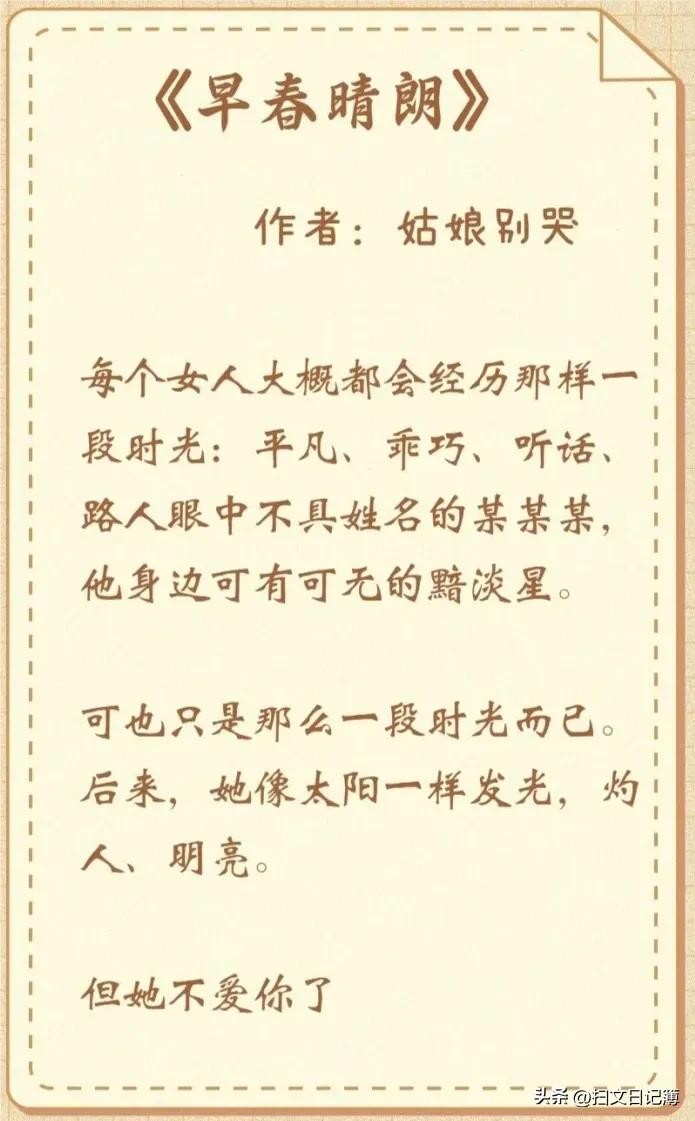 《早春晴朗》
作者：姑娘别哭
每个女人大概都会经历那样一
段时光：平凡、乖巧、听话、
路人眼中不具姓名的某某某，
他身边可有可无的黯淡星。
可也只是那么一段时光而已。
后来，她像太阳一样发光，灼
人、明亮。
但她不爱你了
头条 @扫文日记簿